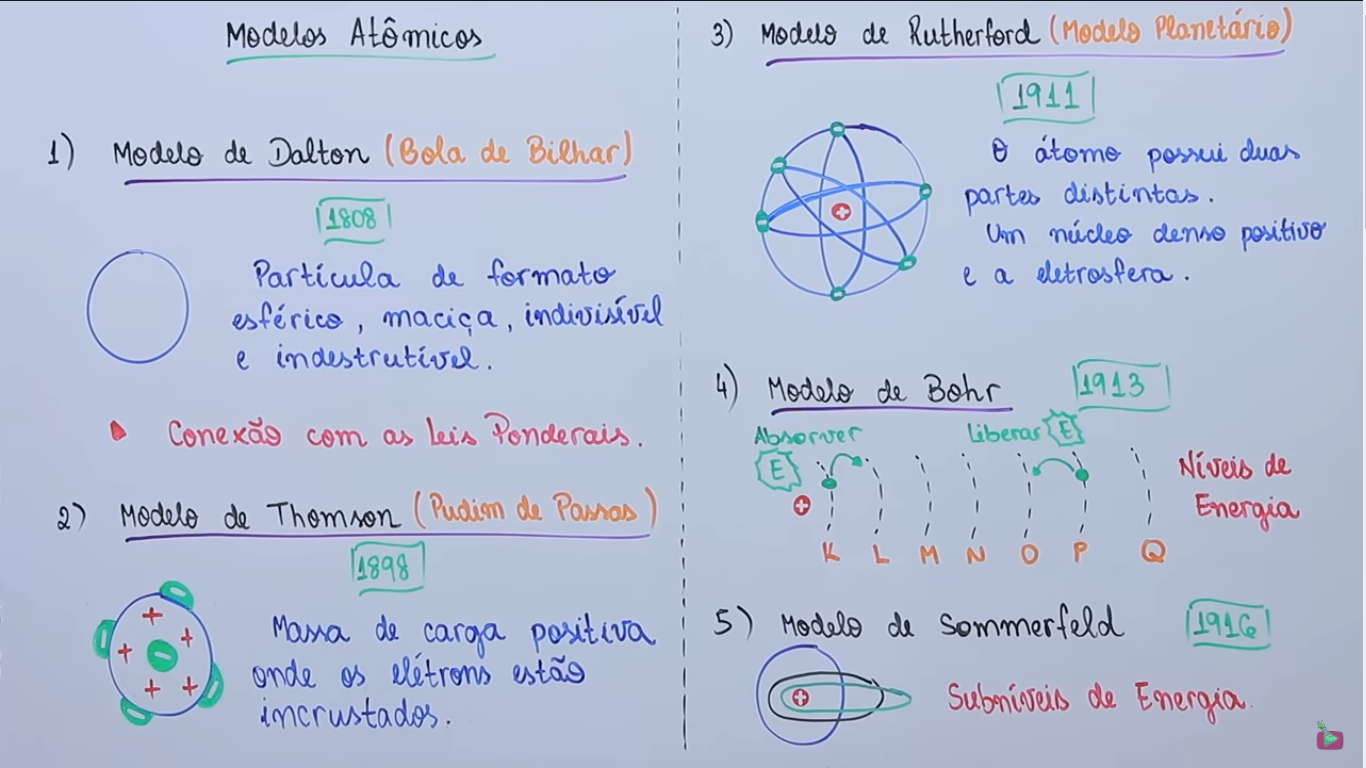 Modelos Atômicos
1) Modelo de Dalton (Bola de Bilhar)
1808
Partícula de formato
esférico, maciça, indivisível
e indestrutível.
Conexão com as leis Ponderais.
2) Modelo de Thomson (Pudim de Passas)
1898
+ + + + +
− − − − −
Massa de carga positiva
onde os elétrons estão
incrustados.
3) Modelo de Rutherford (Modelo Planetário)
1911
− − − − − −
+
O átomo possui duas
partes distintas.
Um núcleo denso positivo
e a eletrosfera.
4) Modelo de Bohr 1913
Absorver Liberar E
E
+
Níveis de
Energia
K L M N O P Q
5) Modelo de Sommerfeld 1916
+
Subníveis de Energia.